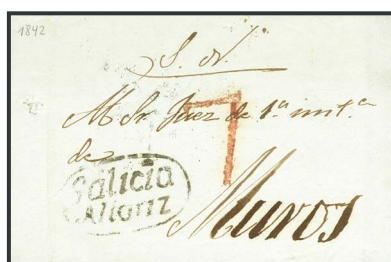 1842
S. N.
M. Sr. Juez de 1ª inst.ª
de
7
Galicia
Allariz
Muros